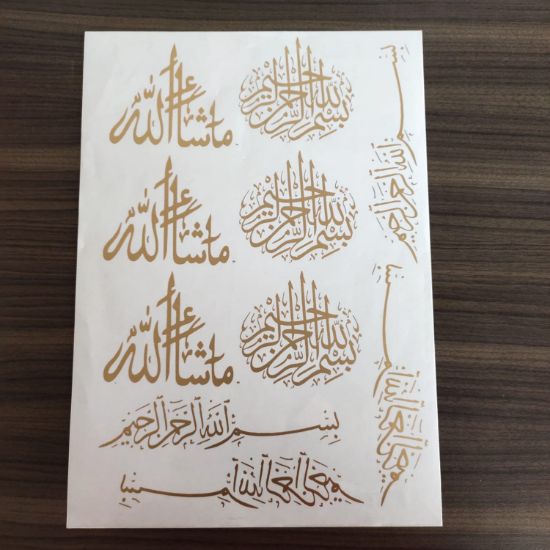 بسم الله الرحمن الرحيم
ما شاء الله
بسم الله الرحمن الرحيم
ما شاء الله
بسم الله الرحمن الرحيم
ما شاء الله
بسم الله الرحمن الرحيم
بسم الله الرحمن الرحيم
بسم الله الرحمن الرحيم
بسم الله الرحمن الرحيم